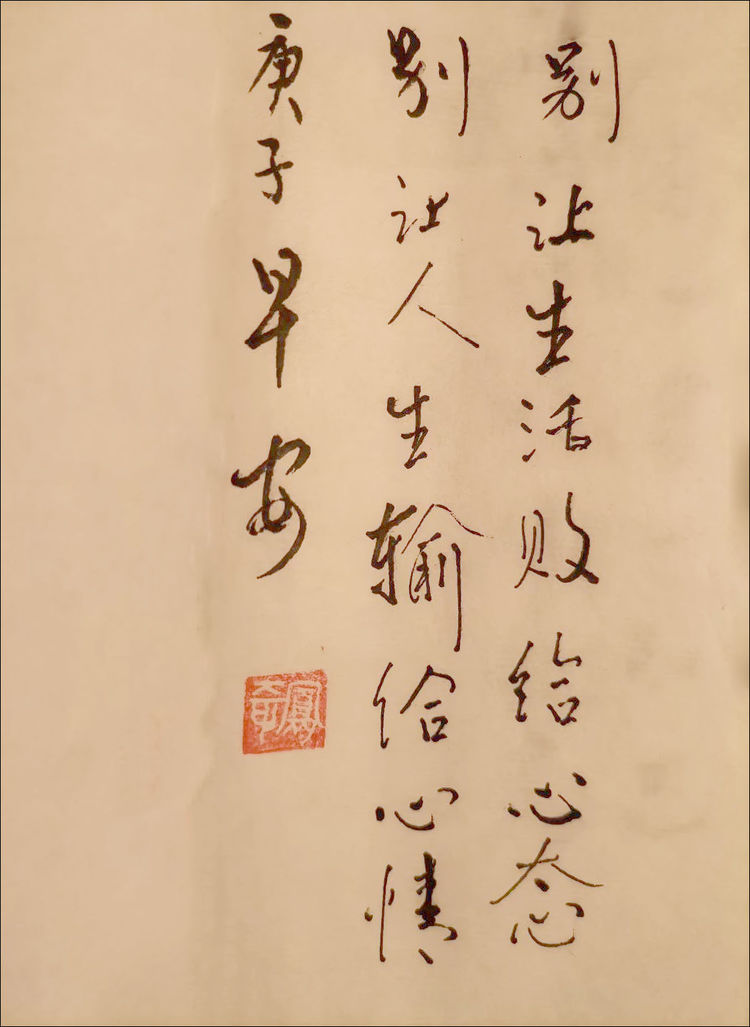 别让生活败给心态
别让人生输给心情
庚子早安